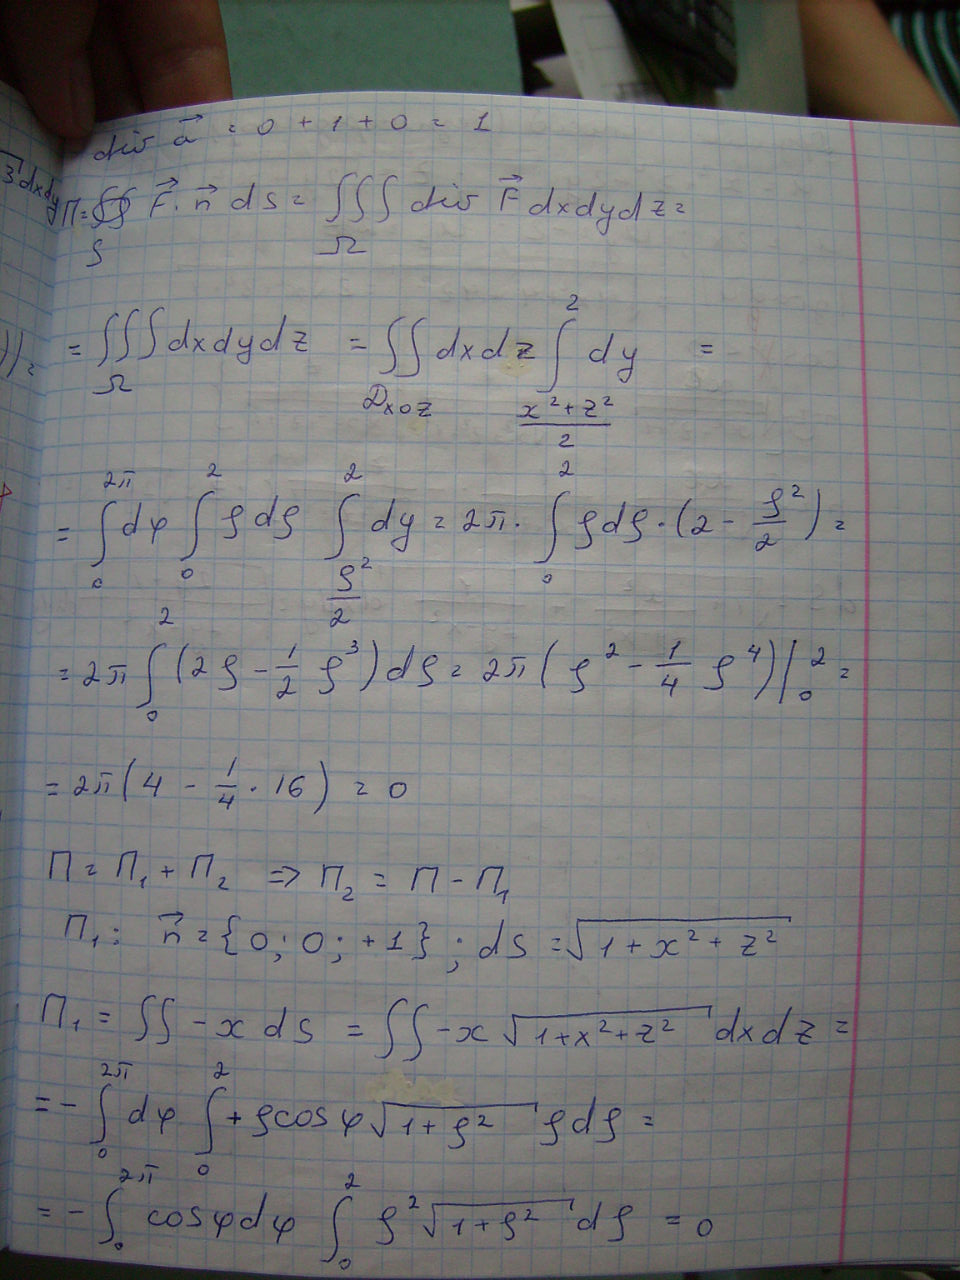 div a⃗ = 0 + 1 + 0 = 1
П = ∯_S F⃗ · n⃗ dS = ∭_Ω div F⃗ dxdydz =
= ∭_Ω dxdydz = ∬_{D_xoz} dxdz ∫_{(x²+z²)/2}^{2} dy =
= ∫_0^{2π} dφ ∫_0^2 ρdρ ∫_{ρ²/2}^{2} dy = 2π · ∫_0^2 ρdρ · (2 - ρ²/2) =
= 2π ∫_0^2 (2ρ - 1/2 ρ³) dρ = 2π (ρ² - 1/4 ρ⁴)|_0^2 =
= 2π (4 - 1/4 · 16) = 0
П = П₁ + П₂ => П₂ = П - П₁
П₁: n⃗ = {0; 0; +1}; dS = √(1 + x² + z²)
П₁ = ∬ -x dS = ∬ -x √(1+x²+z²) dxdz =
= - ∫_0^{2π} dφ ∫_0^2 + ρcosφ √(1+ρ²) ρdρ =
= - ∫_0^{2π} cosφdφ ∫_0^2 ρ² √(1+ρ²) dρ = 0